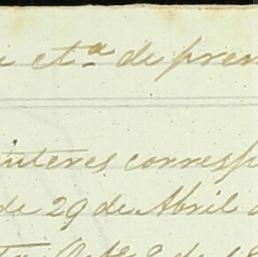 cta de prem
interes corresp
de 29 de Abril
de 18